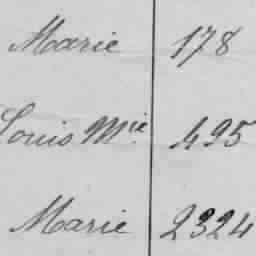 Marie 178
Louis Mie. 495
Marie 2324